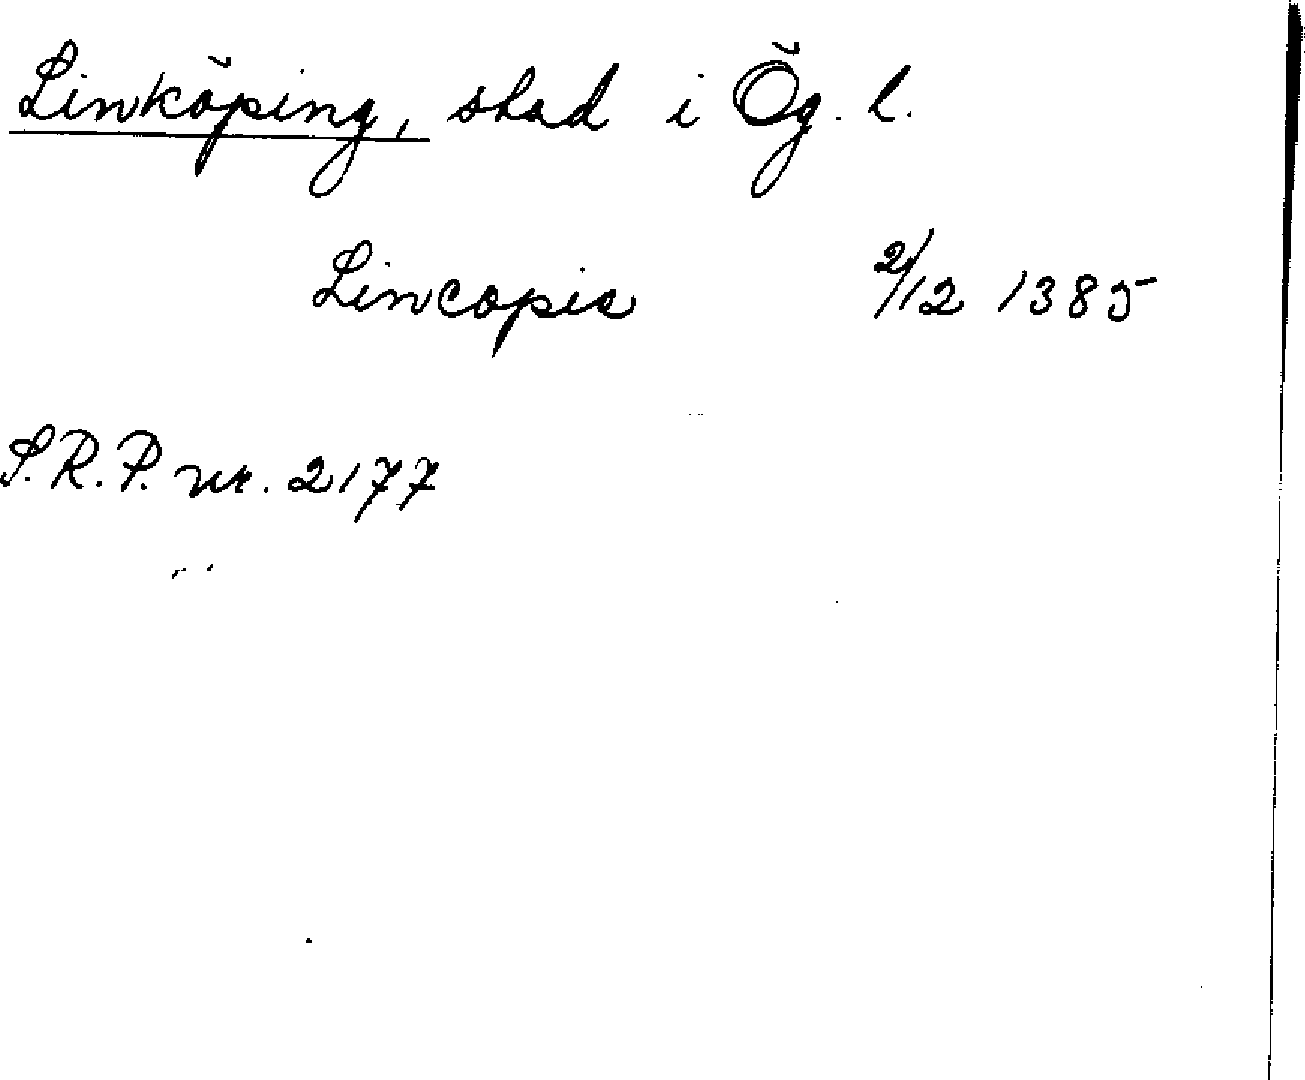 Linköping, stad i Ög. l.
Lincopia 2/12 1385
S.R.P. nr. 2177